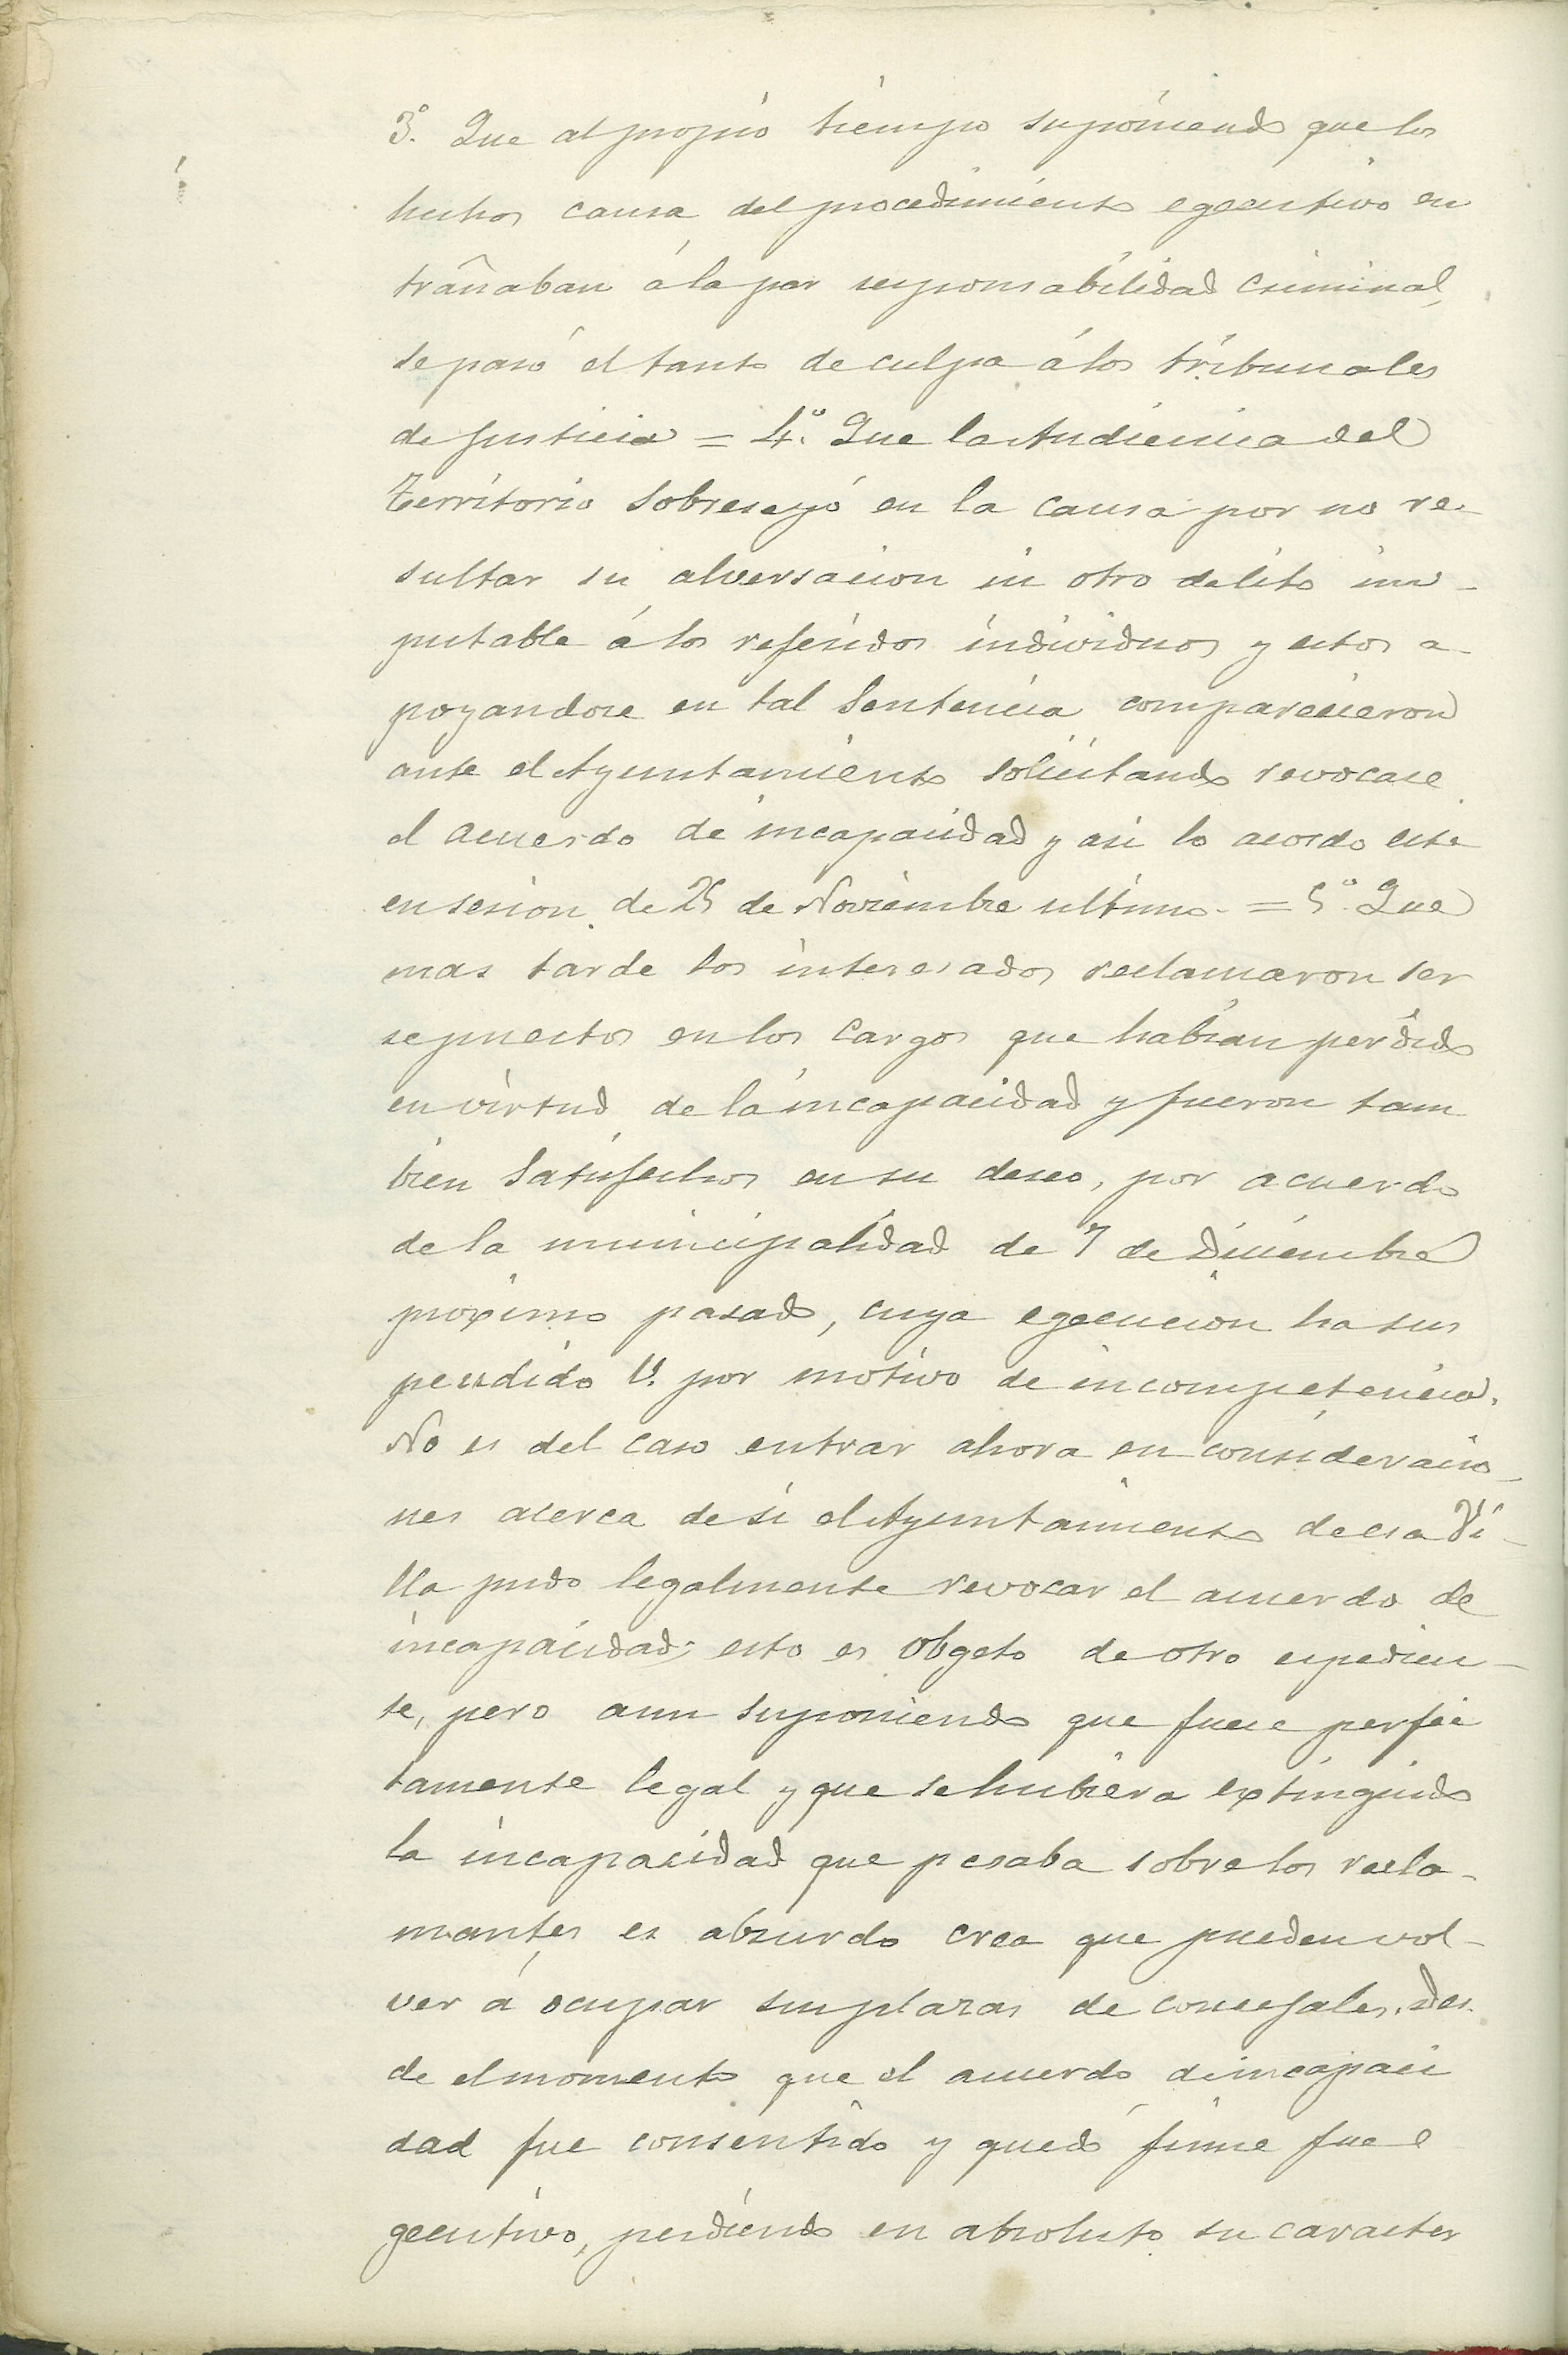 3.º Que al propio tiempo suponiendo que los
hechos causa del procedimiento egecutivo en
trañaban á la par responsabilidad criminal,
se pasó el tanto de culpa á los tribunales
de justicia = 4.º Que la Audiencia del
Territorio sobreseyó en la causa por no re-
sultar su alversacion ni otro delito im-
putable á los referidos individuos y estos a-
poyandose en tal Sentencia comparecieron
ante el Ayuntamiento solicitando revocase
el acuerdo de incapacidad y asi lo acordo este
en sesion de 25 de Noviembre ultimo = 5.º Que
mas tarde los interesados reclamaron ser
repuestos en los cargos que habian perdido
en virtud de la incapacidad y fueron tam
bien satisfechos en su deseo, por acuerdo
de la municipalidad de 7 de Diciembre
proximo pasado, cuya egecucion ha sus
pendido V. por motivo de incompetencia.
No es del caso entrar ahora en consideracio-
nes acerca de si el Ayuntamiento de esa Vi-
lla pudo legalmente revocar el acuerdo de
incapacidad; esto es obgeto de otro espedien-
te, pero aun suponiendo que fuese perfec
tamente legal y que se hubiera extinguido
la incapacidad que pesaba sobre los recla-
mantes es absurdo crea que pueden vol-
ver á ocupar sus plazas de concejales. Des
de el momento que el acuerdo de incapaci
dad fue consentido y quedó firme fue e
gecutivo, perdiendo en absoluto su caracter